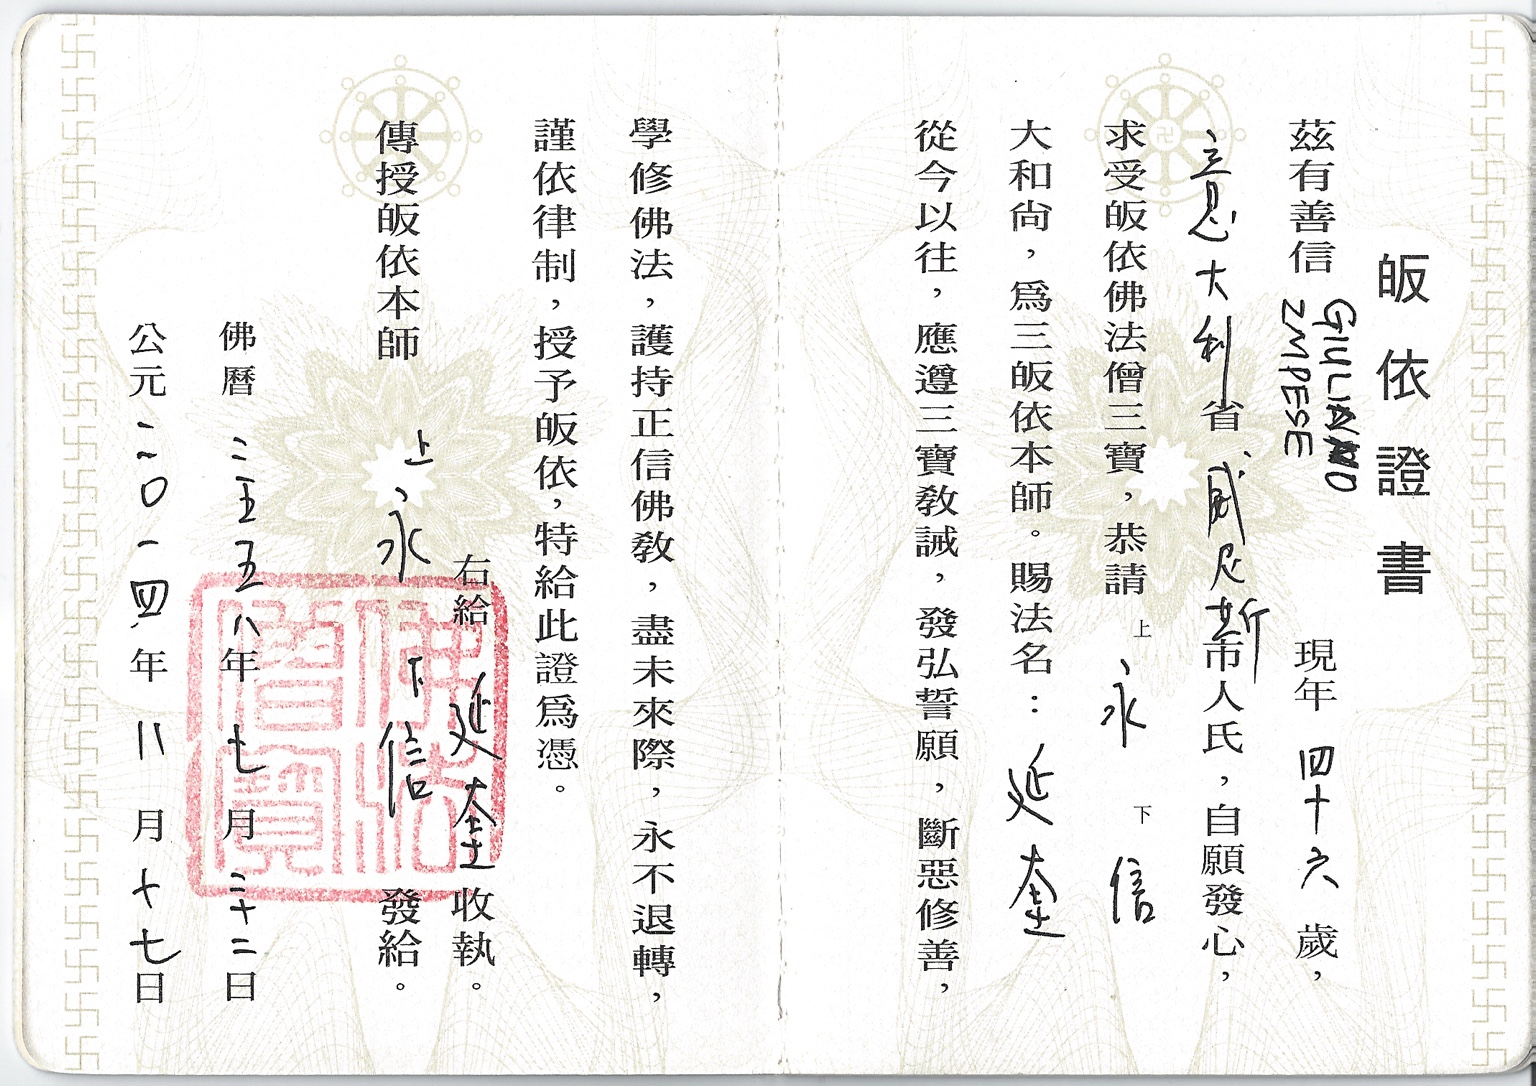 皈依證書
茲有善信 GIULIANO IMPESE 現年 四十六 歲，
意大利省 威尼斯市人氏，自願發心，
求受皈依佛法僧三寶，恭請 上 永 下 信
大和尚，爲三皈依本師。賜法名：延奎
從今以往，應遵三寶教誡，發弘誓願，斷惡修善，
學修佛法，護持正信佛教，盡未來際，永不退轉，
謹依律制，授予皈依，特給此證爲憑。
右給 延奎 收執。
傳授皈依本師 上永 下信 發給。
佛曆 二五五八年 七月 二十二日
公元二〇一四年 八月十七日
佛法僧寶